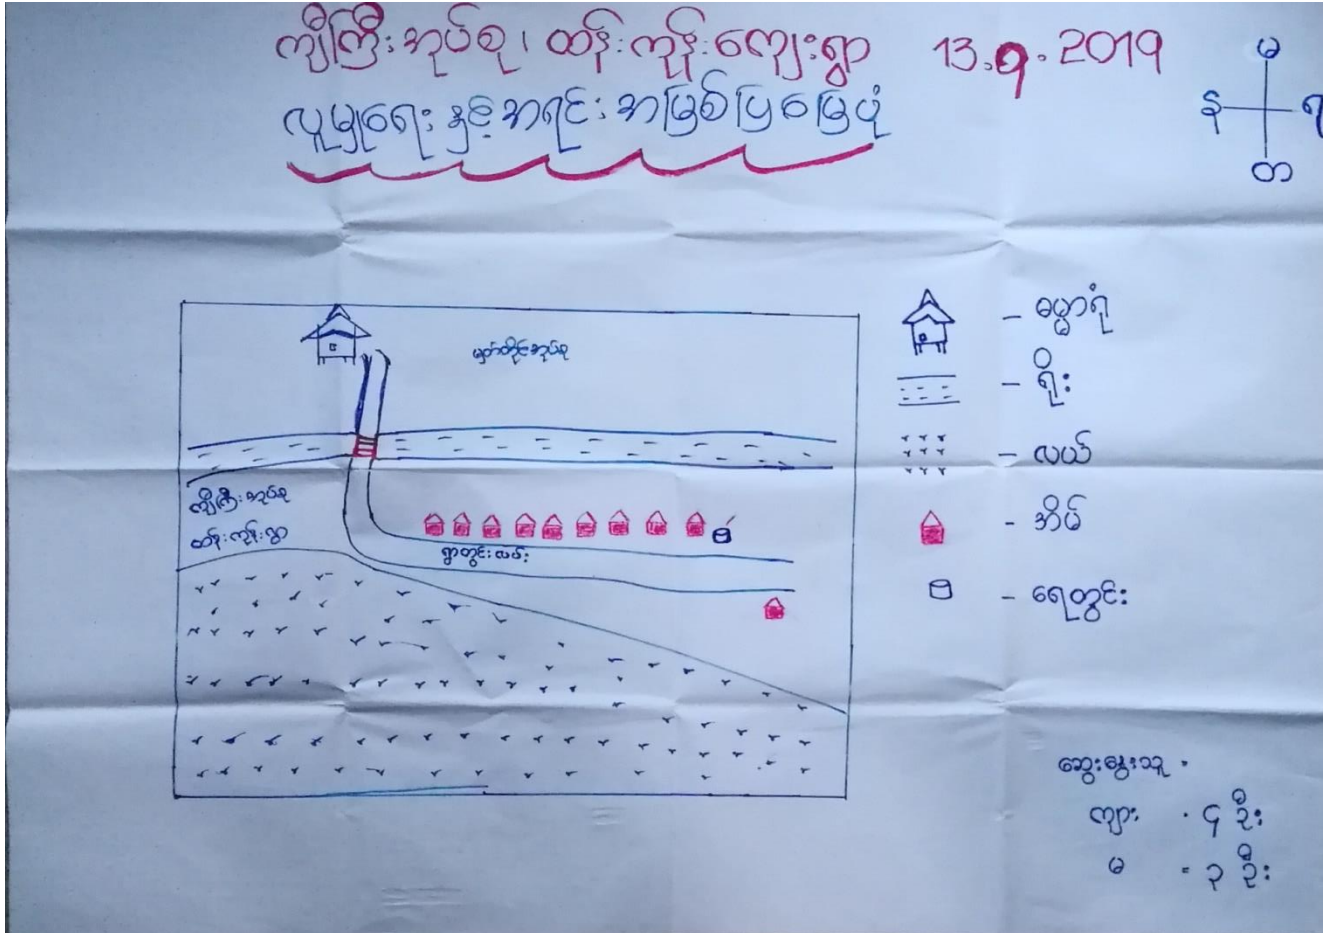 ကျီကြီးအုပ်စု၊ ထန်းကုန်းကျေးရွာ 13.9.2019
လူမှုရေးနှင့်အရင်းအမြစ်ပြမြေပုံ
မ
န
တ
မှတ်တိုင်အုပ်စု
ကျီကြီးအုပ်စု
ထန်းကုန်းရွာ
ရွာတွင်းလမ်း
– ဓမ္မာရုံ
– ရိုး
– လယ်
- အိမ်
– ရေတွင်း
ဆွေးနွေးသူ -
ကျား - ၄ ဦး
မ = ၃ ဦး